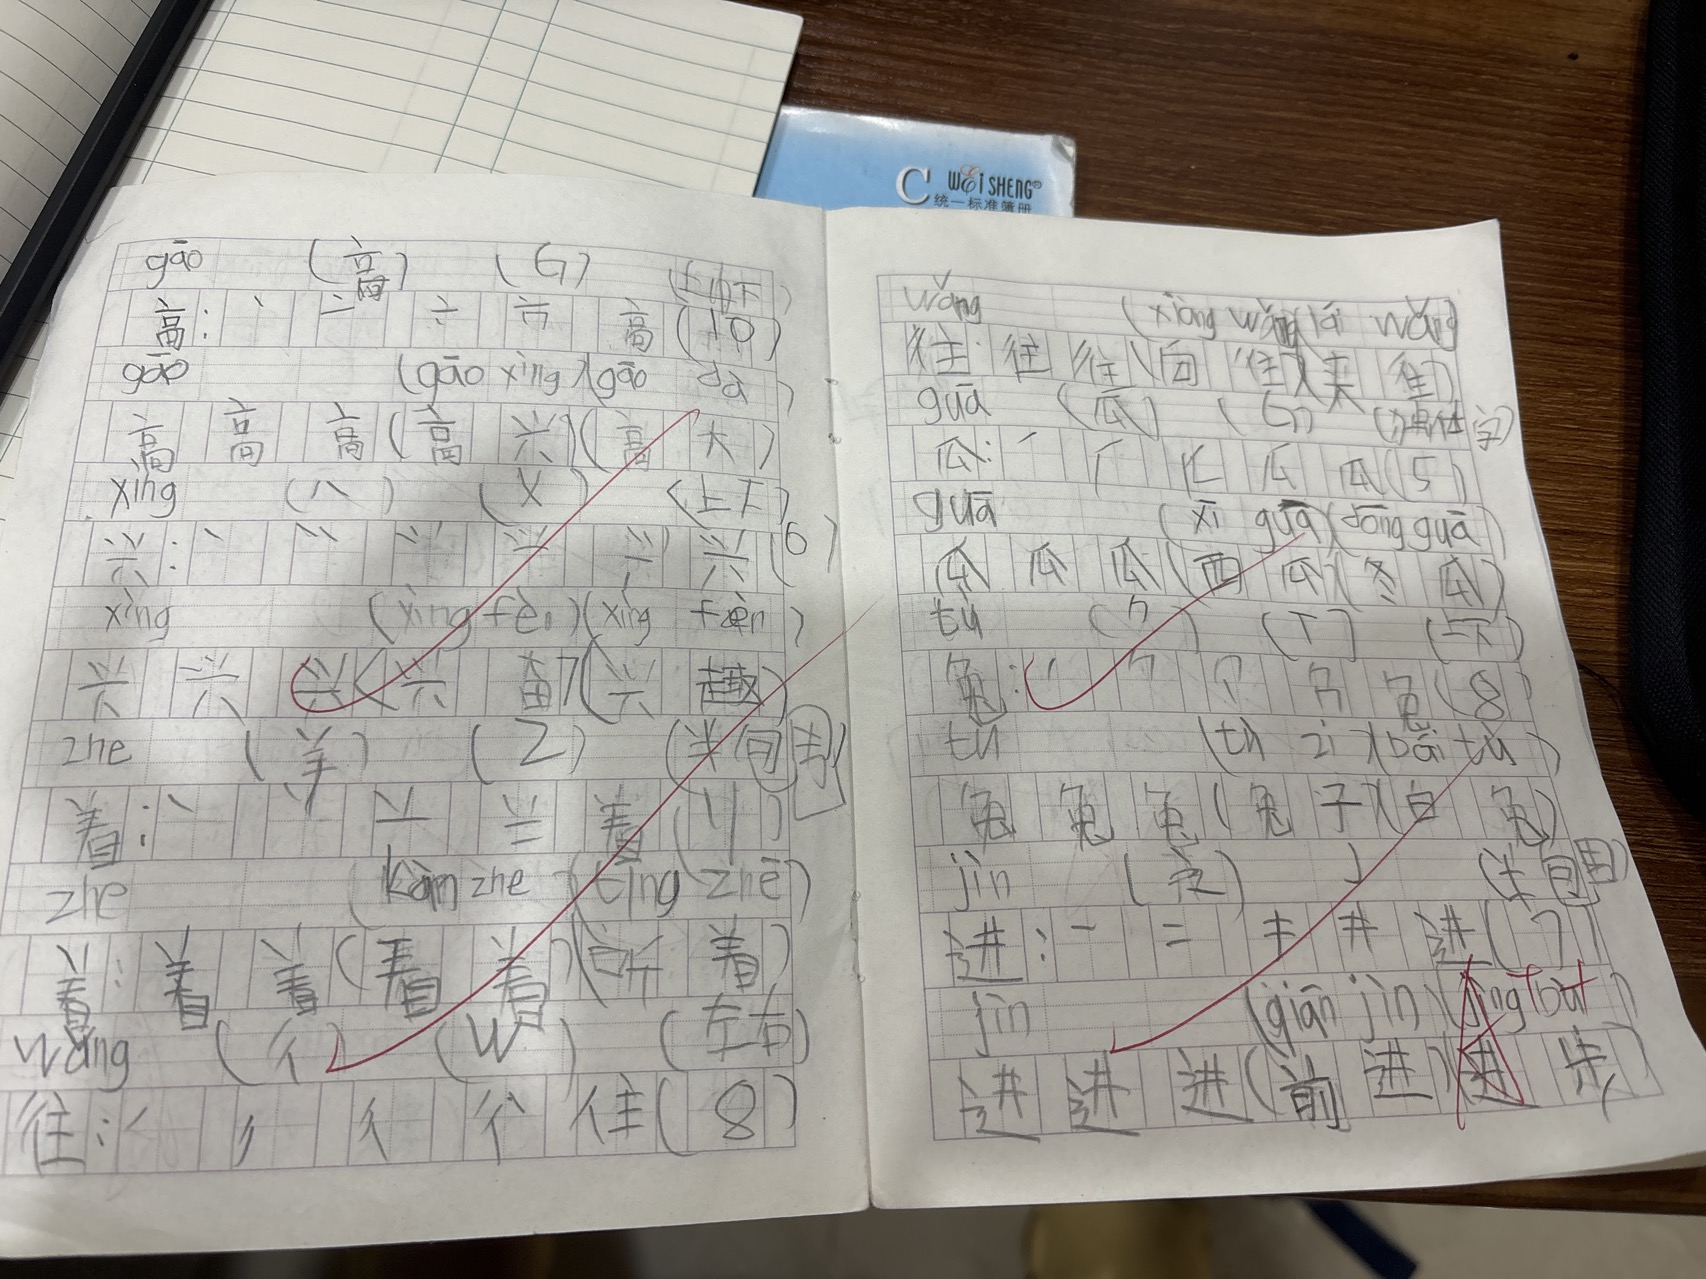 C WEi SHENG®
统一标准簿册
gāo (高) (G) (上中下)
高: 丶 亠 高 (10)
gāo (gāo xìng)(gāo dà)
高 高 高 (高 兴)(高 大)
xìng (八) (X) (上下)
兴: 丶 兴 (6)
xìng (xìng fèn)(xìng
兴 兴 兴 (兴 奋)(兴 趣)
zhe (羊) (Z) (半包围)
着: 丶 着 (11)
zhe (kàn zhe)(tīng zhē)
着: 着 着 (看 着)(听 着)
wǎng (彳) (W) (左右)
往: 丿 彳 往 (8)
wǎng (xiàng wǎng)(lái wǎng)
往: 往 往 (向 往)(来 往)
guā (瓜) (G) (独体字)
瓜: 瓜 瓜 (5)
guā (xī guā)(dōng guā)
瓜 瓜 瓜 (西 瓜)(冬 瓜)
tù (T) (上下)
兔: 兔 (8)
tù (tù zi)(bái tù)
兔 兔 兔 (兔 子)(白 兔)
jìn (辶) J (半包围)
进: 一 二 井 进 (7)
jìn (qián jìn)
进 进 进 (前 进)(进 步)